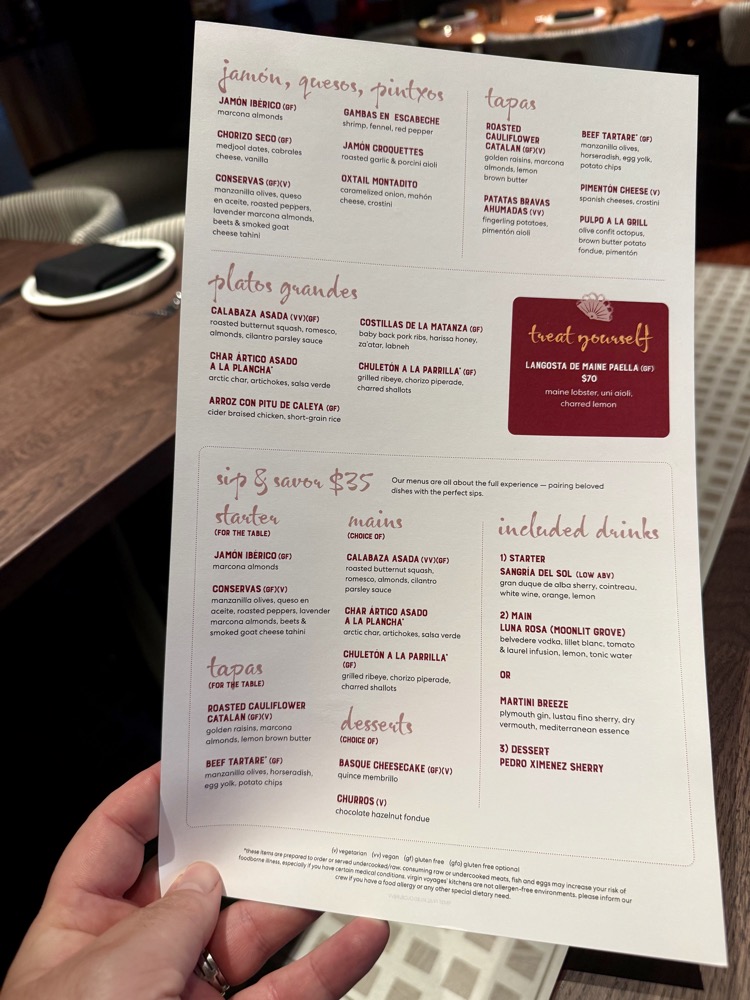 jamón, quesos, pintxos
JAMÓN IBÉRICO (GF)
marcona almonds
CHORIZO SECO (GF)
medjool dates, cabrales
cheese, vanilla
CONSERVAS (GF)(V)
manzanilla olives, queso
en aceite, roasted peppers,
lavender marcona almonds,
beets & smoked goat
cheese tahini
GAMBAS EN ESCABECHE
shrimp, fennel, red pepper
JAMÓN CROQUETTES
roasted garlic & porcini aioli
OXTAIL MONTADITO
caramelized onion, mahón
cheese, crostini
tapas
ROASTED
CAULIFLOWER
CATALAN (GF)(V)
golden raisins, marcona
almonds, lemon
brown butter
PATATAS BRAVAS
AHUMADAS (VV)
fingerling potatoes,
pimentón aioli
BEEF TARTARE* (GF)
manzanilla olives,
horseradish, egg yolk,
potato chips
PIMENTÓN CHEESE (V)
spanish cheeses, crostini
PULPO A LA GRILL
olive confit octopus,
brown butter potato
fondue, pimentón
platos grandes
CALABAZA ASADA (VV)(GF)
roasted butternut squash, romesco,
almonds, cilantro parsley sauce
CHAR ÁRTICO ASADO
A LA PLANCHA*
arctic char, artichokes, salsa verde
ARROZ CON PITU DE CALEYA (GF)
cider braised chicken, short-grain rice
COSTILLAS DE LA MATANZA (GF)
baby back pork ribs, harissa honey,
za'atar, labneh
CHULETÓN A LA PARRILLA* (GF)
grilled ribeye, chorizo piperade,
charred shallots
treat yourself
LANGOSTA DE MAINE PAELLA (GF)
$70
maine lobster, uni aioli,
charred lemon
sip & savor $35
Our menus are all about the full experience — pairing beloved
dishes with the perfect sips.
starter
(FOR THE TABLE)
JAMÓN IBÉRICO (GF)
marcona almonds
CONSERVAS (GF)(V)
manzanilla olives, queso en
aceite, roasted peppers, lavender
marcona almonds, beets &
smoked goat cheese tahini
tapas
(FOR THE TABLE)
ROASTED CAULIFLOWER
CATALAN (GF)(V)
golden raisins, marcona
almonds, lemon brown butter
BEEF TARTARE* (GF)
manzanilla olives, horseradish,
egg yolk, potato chips
mains
(CHOICE OF)
CALABAZA ASADA (VV)(GF)
roasted butternut squash,
romesco, almonds, cilantro
parsley sauce
CHAR ÁRTICO ASADO
A LA PLANCHA*
arctic char, artichokes, salsa verde
CHULETÓN A LA PARRILLA*
(GF)
grilled ribeye, chorizo piperade,
charred shallots
desserts
(CHOICE OF)
BASQUE CHEESECAKE (GF)(V)
quince membrillo
CHURROS (V)
chocolate hazelnut fondue
included drinks
1) STARTER
SANGRÍA DEL SOL (LOW ABV)
gran duque de alba sherry, cointreau,
white wine, orange, lemon
2) MAIN
LUNA ROSA (MOONLIT GROVE)
belvedere vodka, lillet blanc, tomato
& laurel infusion, lemon, tonic water
OR
MARTINI BREEZE
plymouth gin, lustau fino sherry, dry
vermouth, mediterranean essence
3) DESSERT
PEDRO XIMENEZ SHERRY
(v) vegetarian (vv) vegan (gf) gluten free (gfo) gluten free optional
*these items are prepared to order or served undercooked/raw. consuming raw or undercooked meats, fish and eggs may increase your risk of
foodborne illness, especially if you have certain medical conditions. virgin voyages' kitchens are not allergen-free environments. please inform our
crew if you have a food allergy or any other special dietary need.